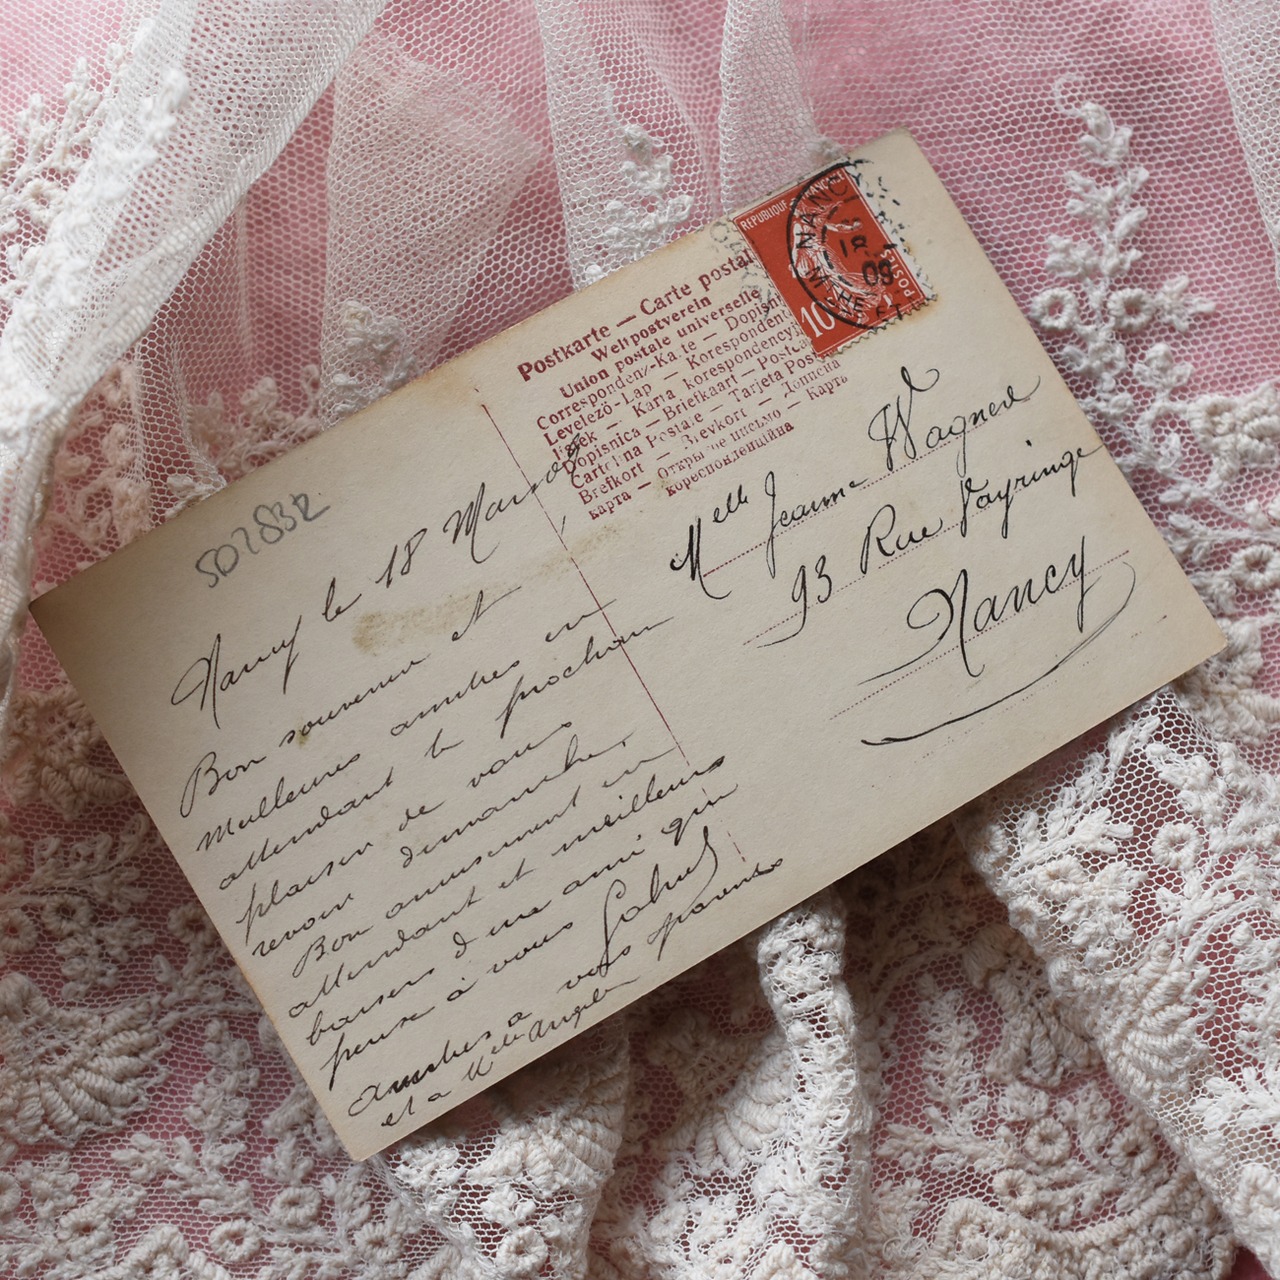 502832
Nancy le 18 Mars 09
Bon souvenir et
meilleures amitiés en
attendant le prochain
plaisir de vous
revoir dimanche,
Bon amusement en
attendant et meilleurs
baisers d'une amie qui
pense à vous
amitiés à vos parents
et à Melle
Postkarte — Carte postale
Weltpostverein
Union postale universelle
Correspondenz-Karte — Dopisnice
Levelező-Lap — Korespondent
Karta korespondencyj
Dopisnica — Briefkaart — Postcard
Cartolina Postale — Tarjeta Postal
Brefkort — Brevkort — Дописна
карта — Открытое письмо — Карта
кореспонденційна
REPUBLIQUE FRANÇAISE
POSTES
10
NANCY
18
09
Melle Jeanne Wagner
93 Rue Vayringe
Nancy